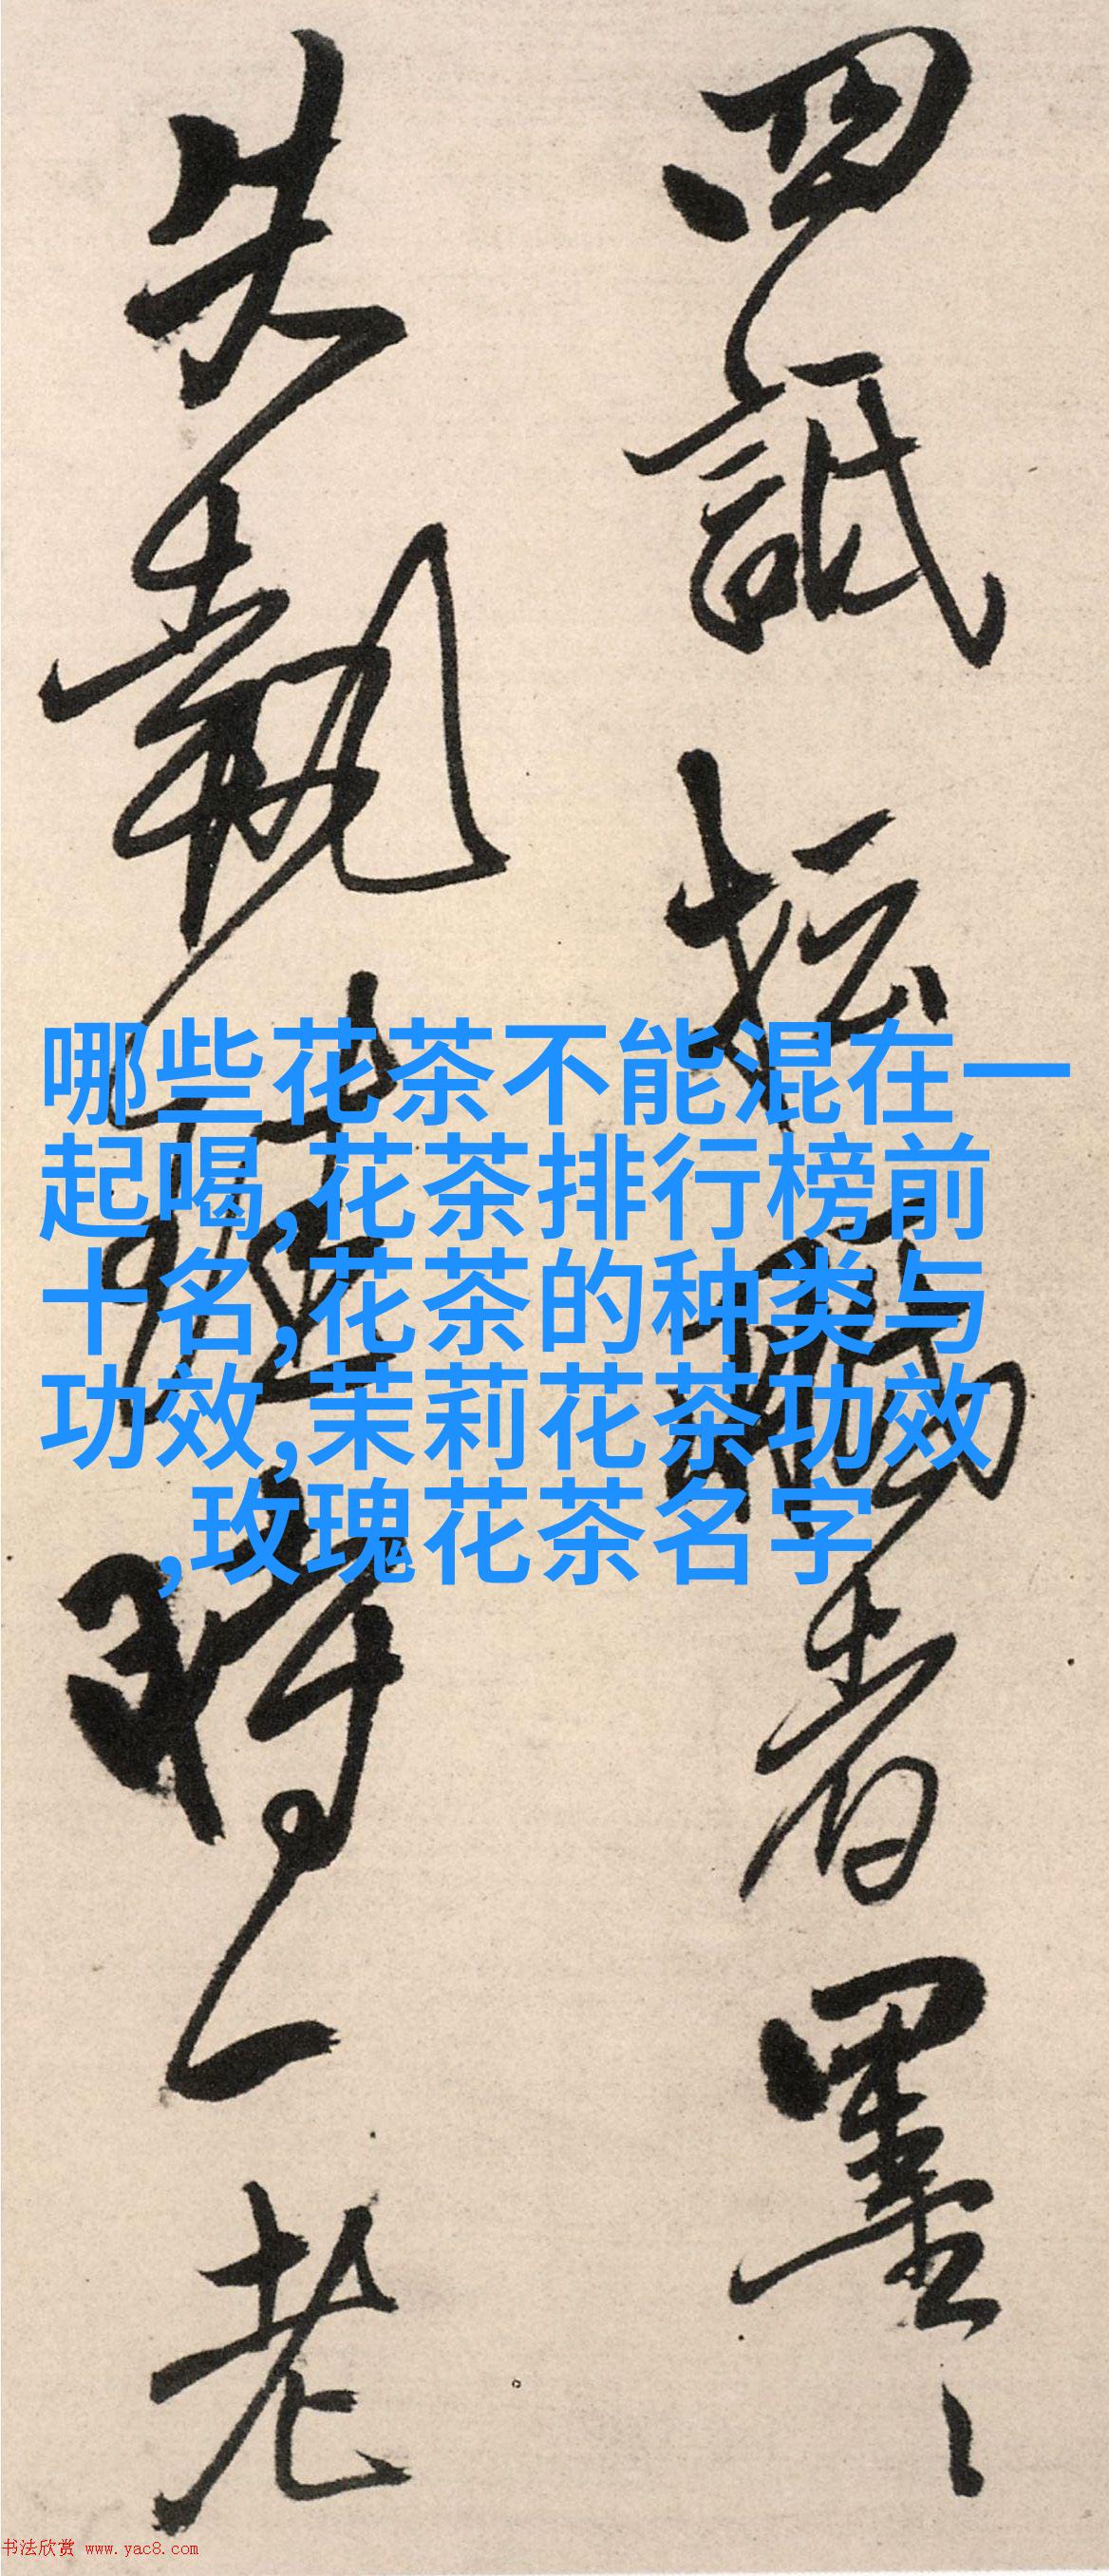 四詆坛
者墨
失執
时一老
哪些花茶不能混在一
起喝,花茶排行榜前
十名,花茶的种类与
功效,茉莉花茶功效
,玫瑰花茶名字
书法欣赏 www.yac8.com